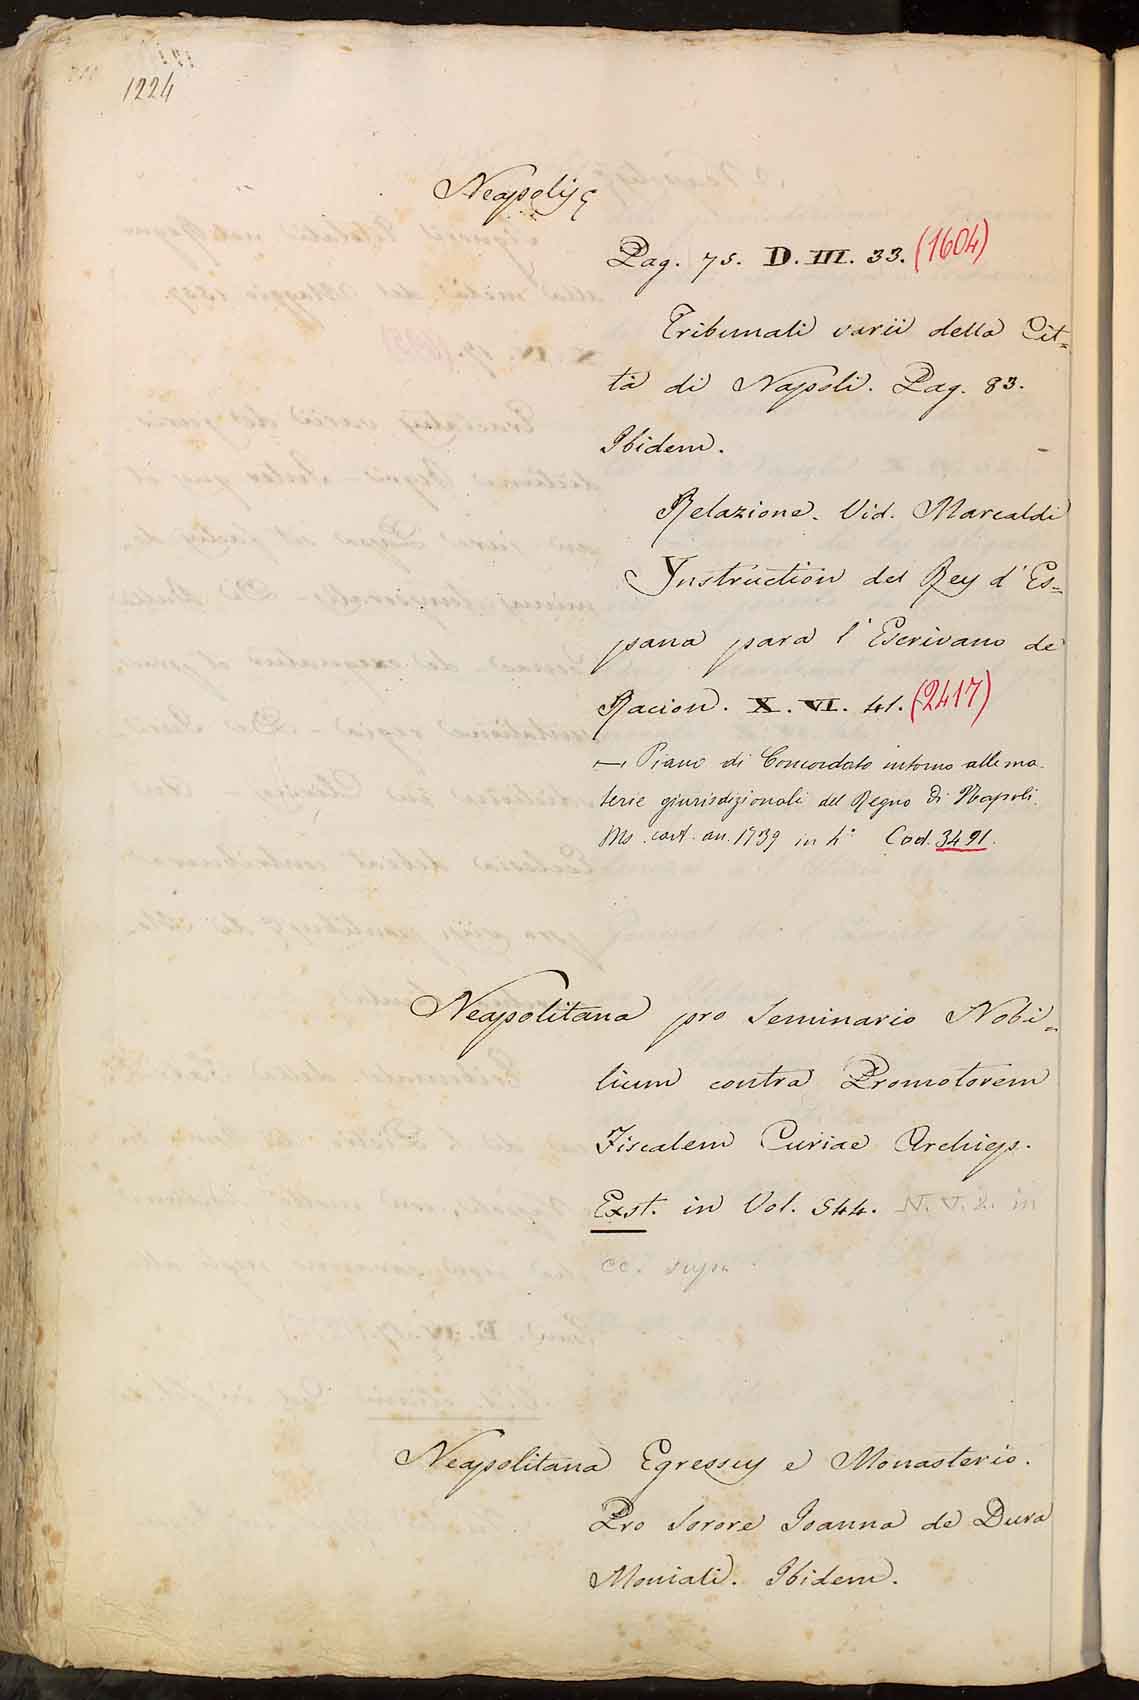 1224
Neapolis
Pag. 75. D. III. 33. (1604)
Tribunali varii della Cit=
tà di Napoli. Pag. 83.
Ibidem.
Relazione. Vid. Marcaldi
Instruction del Rey d'Es=
pana para l'Escrivano de
Racion. X. VI. 41. (2417)
— Piano di Concordato intorno alle ma-
terie giurisdizionali del Regno di Napoli.
Ms. cart. an. 1739 in 4° Cod. 3491.
Neapolitana pro Seminario Nobi=
lium contra Promotorem
Fiscalem Curiae Archiep.
Exst. in Vol. 544. N. V. 2. in
cc. supra
Neapolitana Egressus e Monasterio.
Pro Sorore Ioanna de Dura
Moniali. Ibidem.